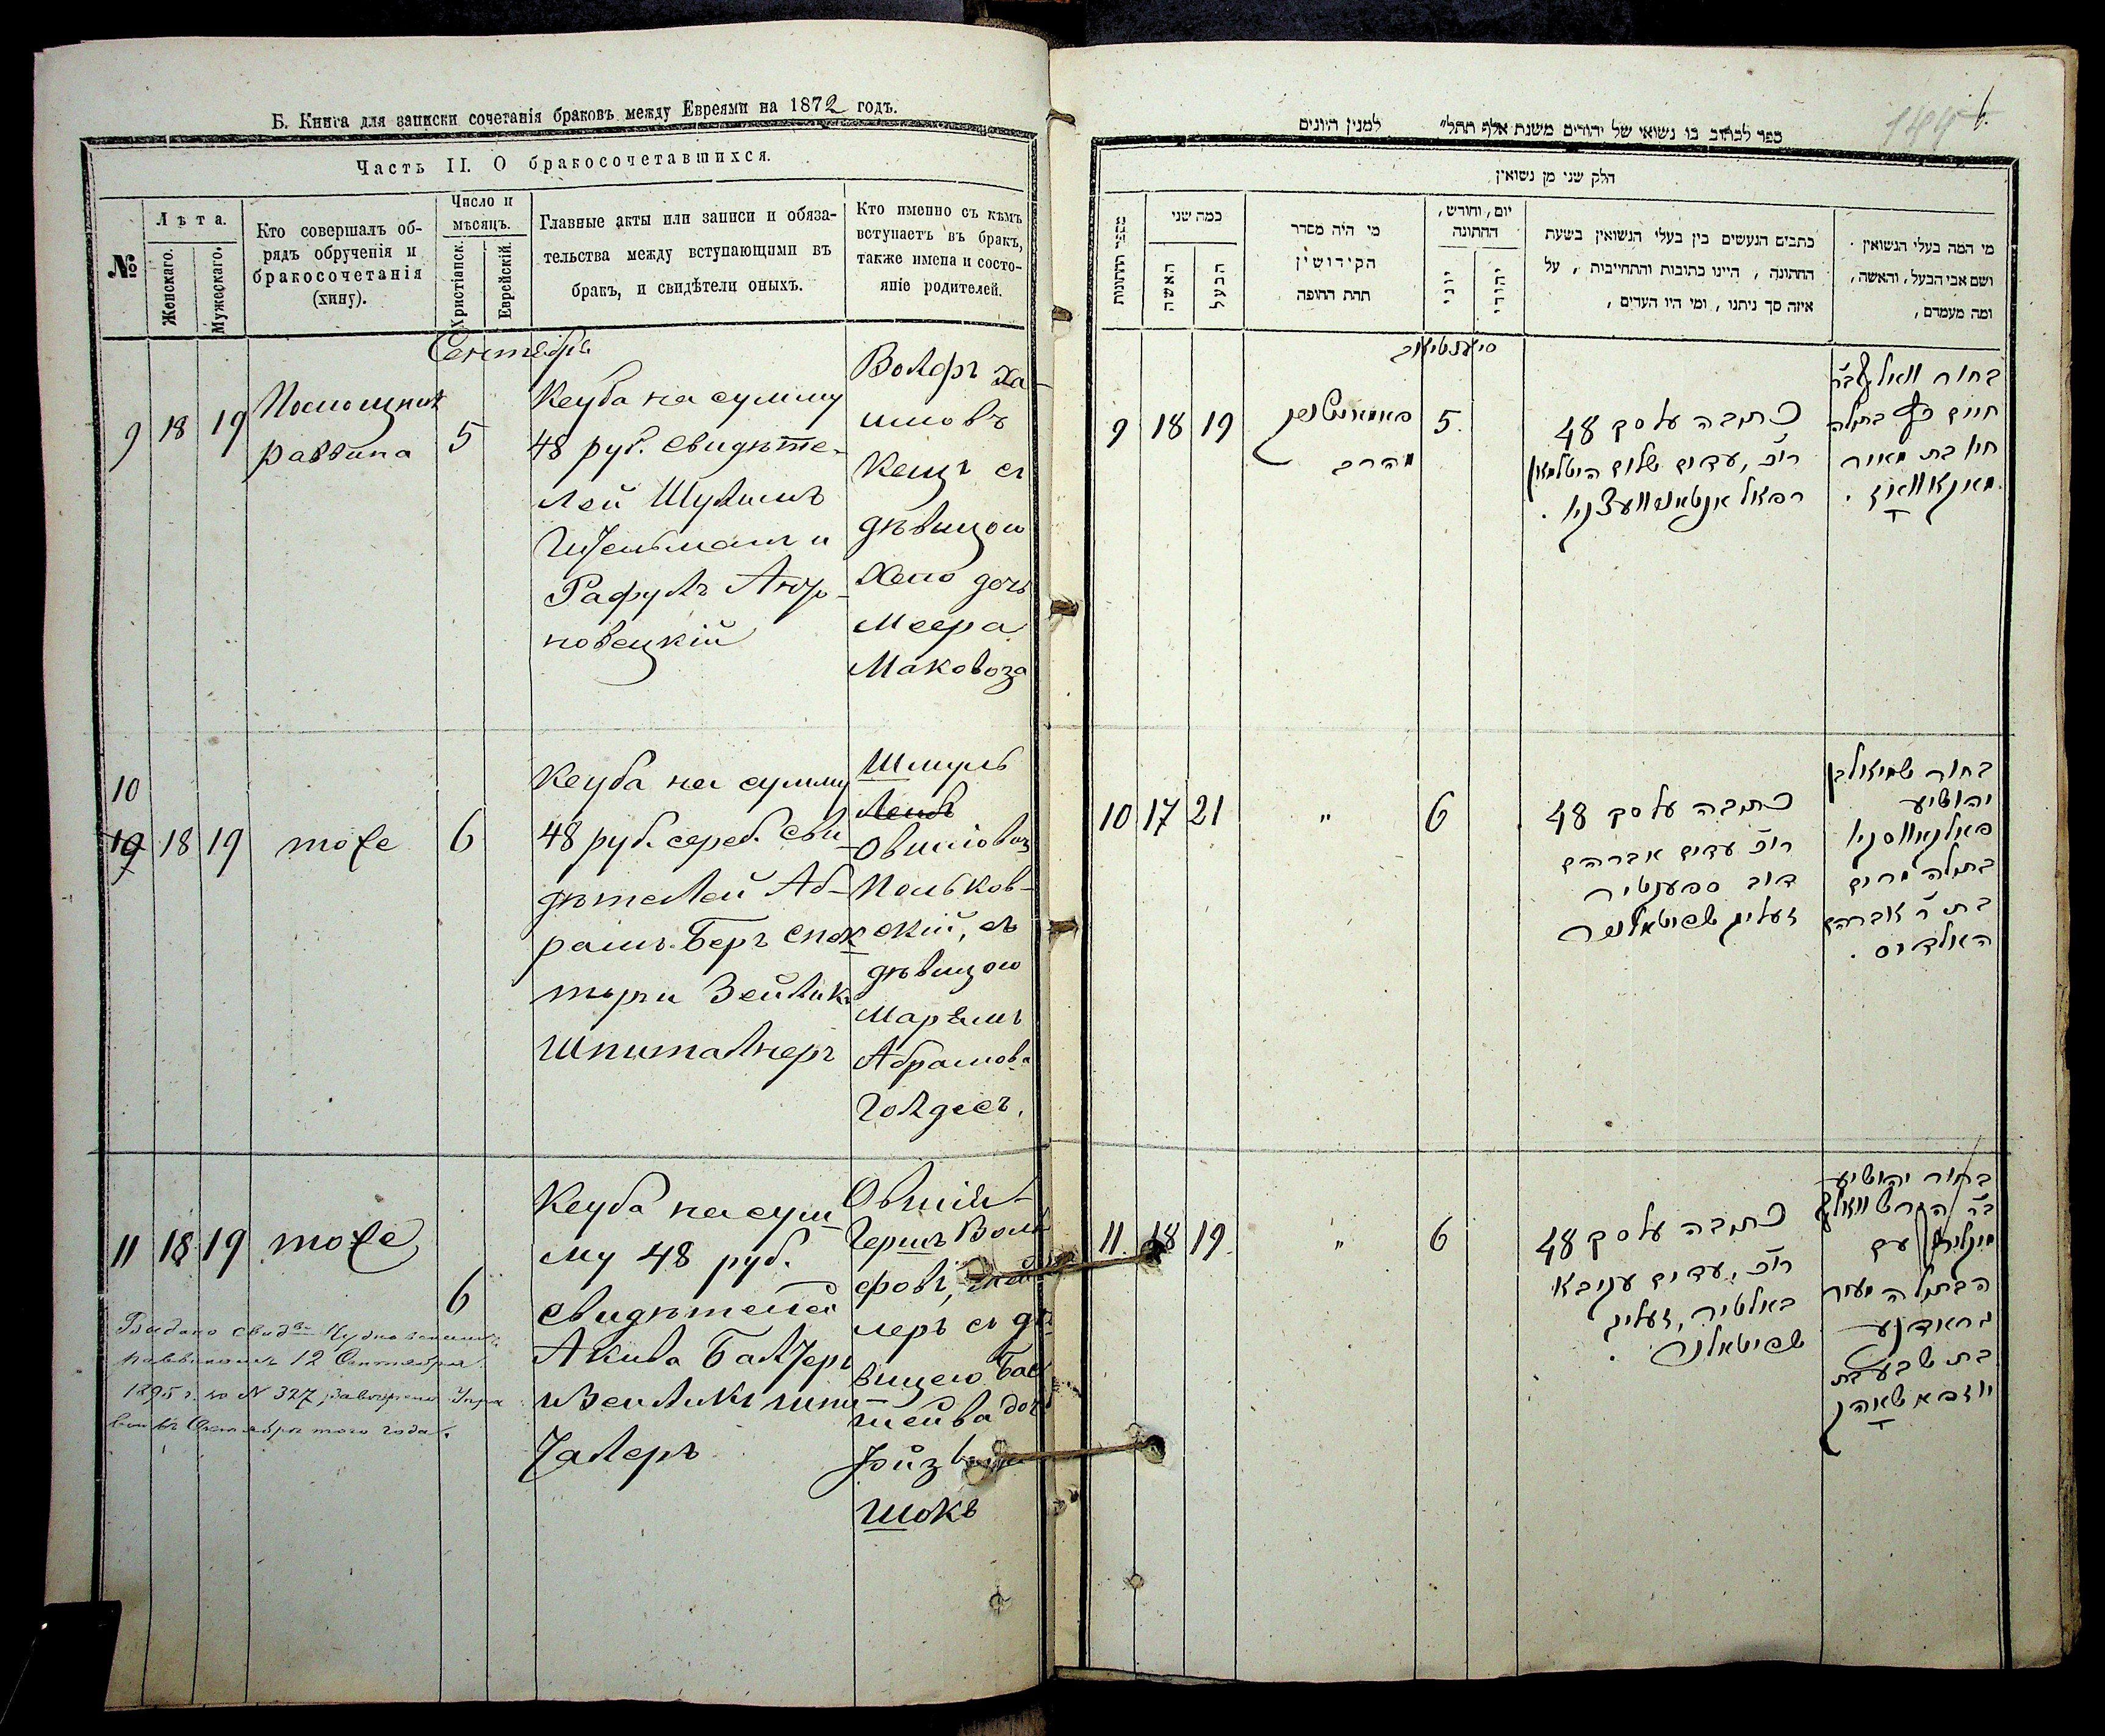 Б. Книга для записки сочетанія браковъ между Евреями на 1872 годъ.
Часть II. О бракосочетавшихся.
№
Лѣта.
Женскаго.
Мужескаго.
Кто совершалъ об-
рядъ обрученія и
бракосочетанія
(хипу).
Число и
мѣсяцъ.
Христіанск.
Еврейскій.
Главные акты или записи и обяза-
тельства между вступающими въ
бракъ, и свидѣтели оныхъ.
Кто именно съ кѣмъ
вступаетъ въ бракъ,
также имена и состо-
яніе родителей.
Сентябрь
9 18 19
Помощникъ
раввина
5
Кеуба на сумму
48 руб. свидѣте-
лей Шулимъ
Штельманъ и
Рафулъ Анто-
новецкій
Вольфъ Ха-
имовъ
Кацъ съ
дѣвицою
Хаею дочь
Меера
Маковоза
10
18 19
тоже
6
Кеуба на сумму
48 руб. сереб. сви-
дѣтелей Аб-
рамъ Беръ Спек-
торъ и Зейликъ
Шпиталнеръ
Шмуль
Овшіовъ
Польков-
скій, съ
дѣвицою
Марьемъ
Абрамова
Голдесъ.
11 18 19
тоже
6
Кеуба на сум-
му 48 руб.
свидѣтелей
Акива Балтеръ
и Зейликъ Шпи-
талеръ
Овшій
Гершъ Воль-
фовъ,
леръ съ дѣ-
вицею Бас
шейва дочь
Шокъ
12
1895 г. за N 327
того года.
ספר לכתוב בו נשואי של יהודים משנת אלף תתל״ למנין היונים
חלק שני מן נשואין
מספר החתונות
כמה שני
האשה
הבעל
מי היה מסדר
הקידושין
תחת החופה
יום, וחודש,
החתונה
יוני
יהודי
כתבים הנעשים בין בעלי הנשואין בשעת
החתונה, היינו כתובות והתחייבות, על
איזה סך ניתנו, ומי היו העדים,
מי המה בעלי הנשואין
ושם אבי הבעל, והאשה,
ומה מעמדם,
סיענטיאב
9 18 19
מהרב
5.
כתובה על סך 48
רו״כ, עדים שלום שטלמאן
רפאל אנטאנאוועצקי
בחור וואלף ב״ר
חיים כץ בתולה
חיו בת מאיר
מאקאוואז
10 17 21
"
6
כתובה על סך 48
רו״כ עדים אברהם
דוב ספעקטיר
זעליג שפיטאלנער
בחור שמואל בן
יהושיע
פאלקאווסקי
בתולה מרים
בת ר אברהם
האלדיס.
11. 18 19.
"
6
כתובה על סך 48
רו״כ, עדים עקיבא
באלטיר, זעליג
שפיטאלנר.
בחור יהושיע
ב״ר הרש וואלף
עם
הבתולה
בת שבע בת